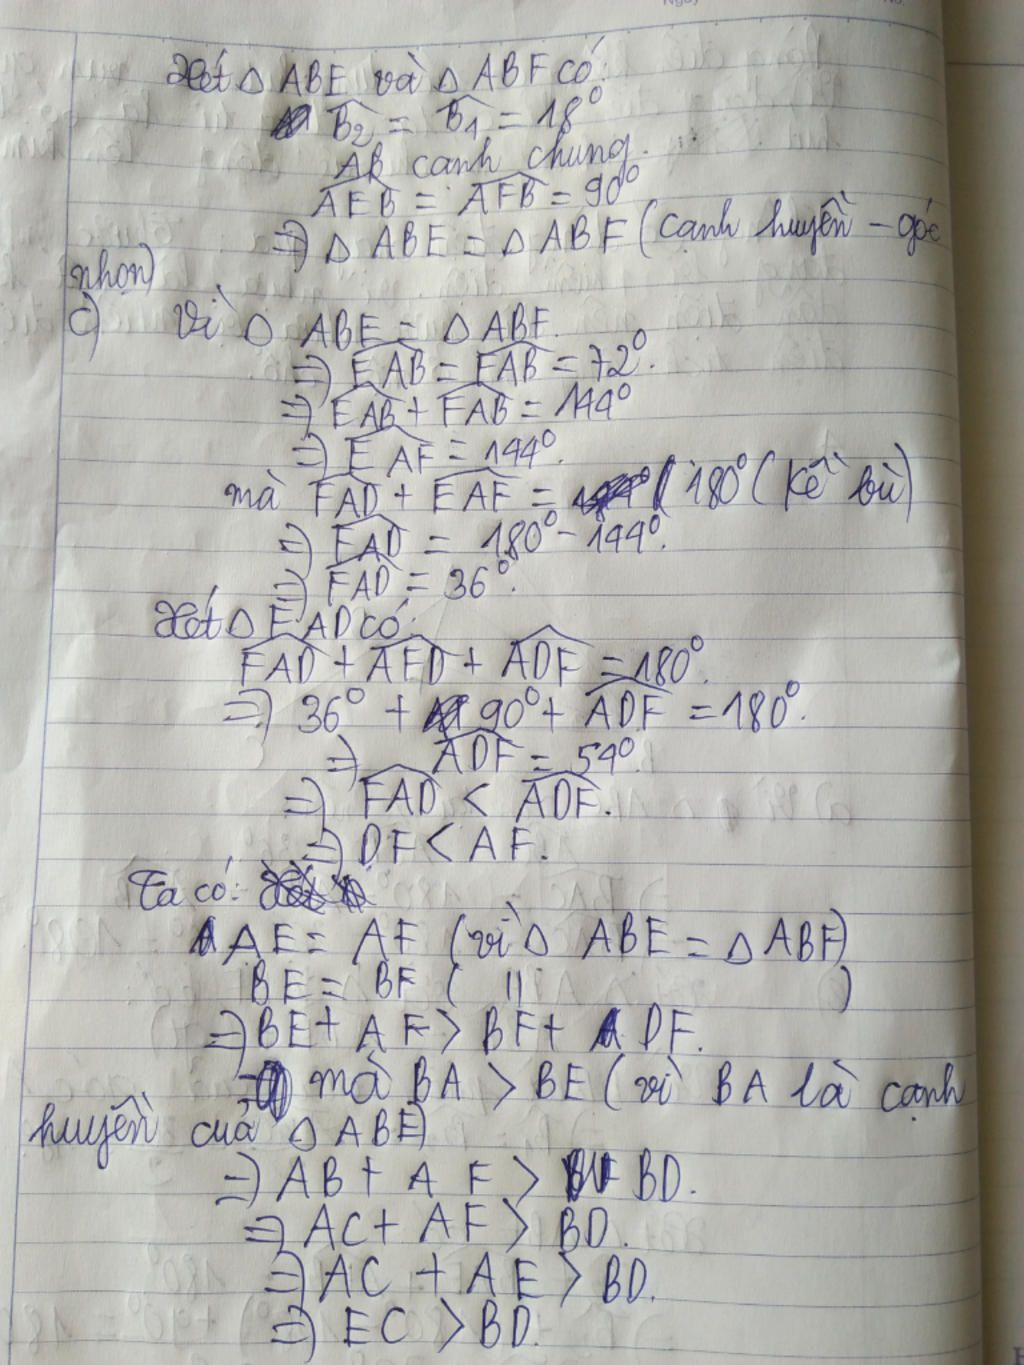 Xét Δ ABE và Δ ABF có:
B̂₂ = B̂₁ = 18°
AB cạnh chung.
AEB = AFB = 90°
=) Δ ABE = Δ ABF (cạnh huyền - góc
nhọn)
c) Vì Δ ABE = Δ ABF.
=) EAB = FAB = 72°.
=) EAB + FAB = 144°
=) EAF = 144°.
mà FAD + EAF = 180° (kề bù)
=) FAD = 180° - 144°.
=) FAD = 36°.
Xét Δ FAD có:
FAD + AFD + ADF = 180°.
=) 36° + 90° + ADF = 180°.
=) ADF = 54°.
=) FAD < ADF.
=) DF < AF.
Ta có:
AE = AF (vì Δ ABE = Δ ABF)
BE = BF ( 〃 )
=) BE + AF > BF + DF.
mà BA > BE (vì BA là cạnh
huyền của Δ ABE)
=) AB + AF > BD.
=) AC + AF > BD.
=) AC + AE > BD.
=) EC > BD.